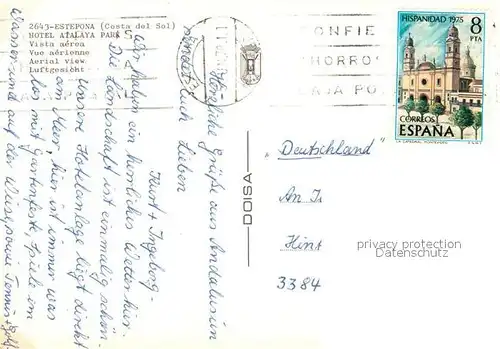 2643-ESTEPONA (Costa del Sol)
HOTEL ATALAYA PARK
Vista aérea
Vue aérienne
Aerial view
Luftgesicht
HISPANIDAD 1975
8
PTA
CORREOS
ESPAÑA
LA CATEDRAL, MONTEVIDEO
F.N.M.T.
ONFIE
HORRO
AJA PO
DOISA
"Deutschland"
An
3384
privacy protection
Datenschutz
Grüße aus Andalusien
Lieben
Kurt + Ingeborg.
wir haben ein herrliches Wetter hier.
Die Landschaft ist einmalig schön.
unsere Hotelanlage liegt direkt
am Meer, hier ist immer was
los mit Gartenfeste, Spiele im
Wasser und auf der Tennis + Golf.